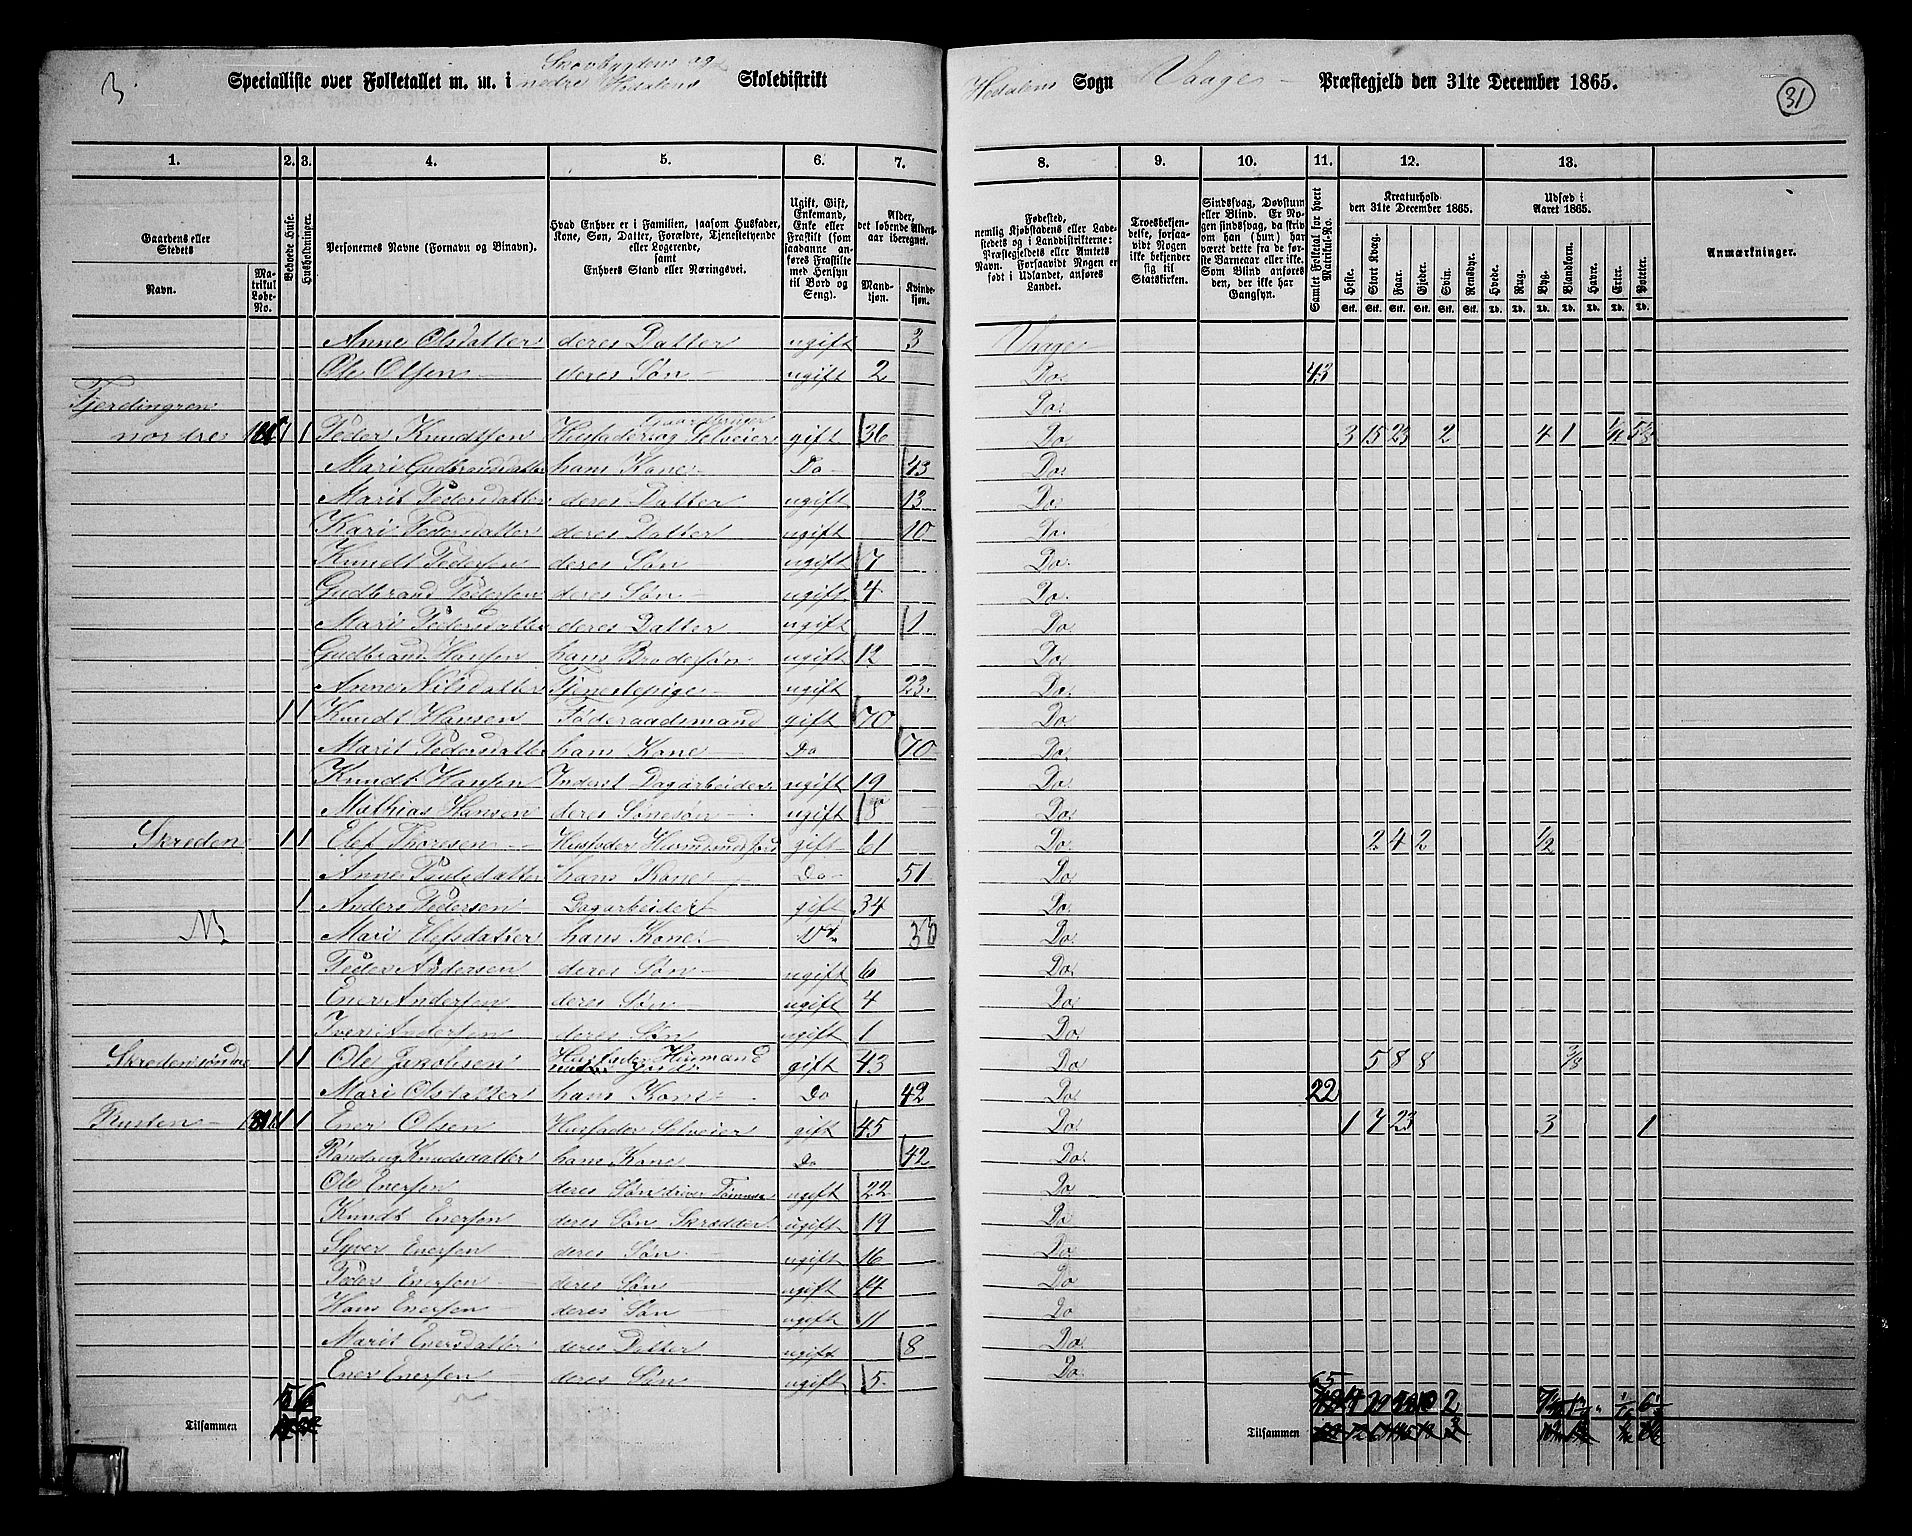 3
Specialliste over Folketallet m. m. i Skovbygdens og nedre Hedalens Skoledistrikt
Hedalens Sogn Vaage Præstegjeld den 31te December 1865.
31
1. 2. 3. 4. 5. 6. 7. 8. 9. 10. 11. 12. 13.
Gaardens eller Stedets Navn.
Matrikul Løbe-No.
Beboede Huse.
Husholdninger.
Personernes Navne (Fornavn og Binavn).
Hvad Enhver er i Familien, saasom Husfader, Kone, Søn, Datter, Forældre, Tjenestetyende eller Logerende, samt Enhvers Stand eller Næringsvei.
Ugift, Gift, Enkemand, Enke eller Fraskilt (som saadanne anføres Fraskilte med Hensyn til Bord og Seng).
Alder, det løbende Alders-aar iberegnet.
Mandkjøn. Kvindekjøn.
Fødested, nemlig Kjøbstadens eller Ladestedets og i Landdistrikterne: Præstegjeldets eller Amtets Navn. Forsaavidt Nogen er født i Udlandet, anføres Landet.
Troesbekjendelse, forsaavidt Nogen ikke bekjender sig til Statskirken.
Sindssvag, Døvstum eller Blind. Er Nogen sindssvag, da skrives om han (hun) har været dette fra de første Barneaar eller ikke. Som Blind anføres den, der ikke har Gangsyn.
Samlet Folketal for hvert Matrikul-No.
Kreaturhold den 31te December 1865.
Heste. Stort Kvæg. Faar. Gjeder. Svin. Rensdyr.
Udsæd i Aaret 1865.
Hvede. Rug. Byg. Blandkorn. Havre. Erter. Poteter.
Anmærkninger.
Anne Olsdatter deres Datter ugift 3 Vaage
Ole Olsen deres Søn ugift 2 Do. 43
Fjerdingren Do.
nordre 1 1 Peder Knudtsen Husfader og Gaardbruger Selveier gift 36 Do. 3 15 23 2 4 1
Mari Gudbrandsdatter hans Kone Do 43 Do.
Marit Pedersdatter deres Datter ugift 13 Do.
Kari Pedersdatter deres Datter ugift 10 Do.
Knudt Pedersen deres Søn ugift 7 Do.
Gudbrand Pedersen deres Søn ugift 4 Do.
Mari Pedersdatter deres Datter ugift 1 Do.
Gudbrand Hansen hans Brodersøn ugift 12 Do.
Anne Nilsdatter Tjenestepige ugift 23 Do.
1 1 Knudt Hansen Føderaadsmand gift 70 Do.
Marit Pedersdatter hans Kone Do 70 Do.
Knudt Hansen Inderst Dagarbeider ugift 19 Do.
Mathias Hansen deres Sønesøn ugift 18 Do.
Skreden 1 1 Elef Thoresen Husfader Huusmand gift 61 Do. 2 4 2 1/2
Anne Poulsdatter hans Kone Do 51 Do.
1 Anders Pedersen Dagarbeider gift 34 Do.
N Mari Elefsdatter hans Kone Do. Do.
Peder Andersen deres Søn ugift 6 Do.
Ener Andersen deres Søn ugift 4 Do.
Iver Andersen deres Søn ugift 1 Do.
Skreden søndre 1 1 Ole Jacobsen Husfader Huusmand med Jord gift 43 Do 5 8 8 3/8
Mari Olsdatter hans Kone Do 42 Do. 22
Rusten 1 1 Ener Olsen Husfader Selveier gift 45 Do. 1 7 23 3 1
Røndaug Knudsdatter hans Kone Do 42 Do.
Ole Enersen deres Søn driver ugift 22 Do.
Knudt Enersen deres Søn Skrædder ugift 19 Do
Syver Enersen deres Søn ugift 16 Do
Peder Enersen deres Søn ugift 14 Do
Hans Enersen deres Søn ugift 11 Do
Marit Enersdatter deres Datter ugift 8 Do.
Ener Enersen deres Søn ugift 5 Do.
5 6 65 2
Tilsammen
Tilsammen